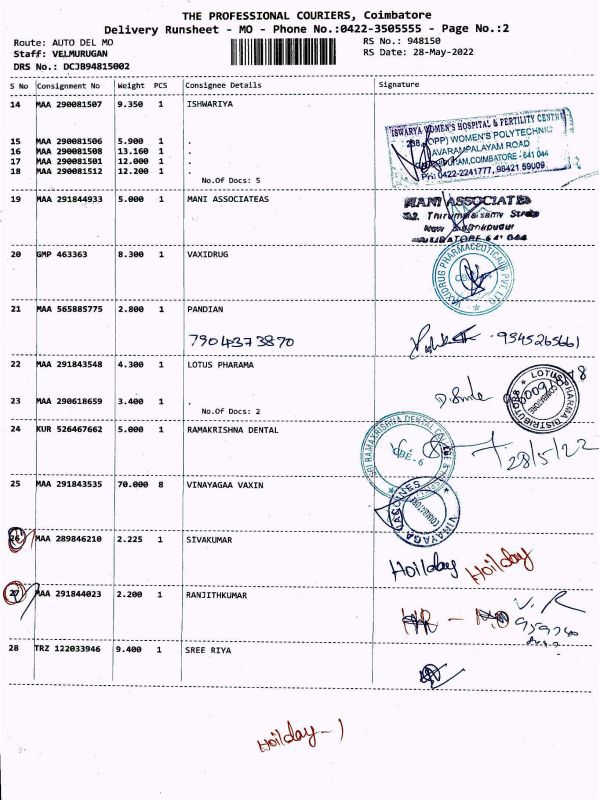 THE PROFESSIONAL COURIERS, Coimbatore
Delivery Runsheet - MO - Phone No.:0422-3505555 - Page No.:2
Route: AUTO DEL MO RS No.: 948150
Staff: VELMURUGAN RS Date: 28-May-2022
DRS No.: DCJB94815002
S No Consignment No Weight PCS Consignee Details Signature
14 MAA 290081507 9.350 1 ISHWARIYA
ISWARYA WOMEN'S HOSPITAL & FERTILITY CENTRE
(OPP) WOMEN'S POLYTECHNIC
AVARAMPALAYAM ROAD
COIMBATORE - 641 044
PH: 0422-2241777, 98421 59009
15 MAA 290081506 5.900 1 .
16 MAA 290081508 13.160 1 .
17 MAA 290081501 12.000 1 .
18 MAA 290081512 12.200 1 .
No.Of Docs: 5
19 MAA 291844933 5.000 1 MANI ASSOCIATEAS
MANI ASSOCIATES
20 GMP 463363 8.300 1 VAXIDRUG
VAXIDRUG PHARMACEUTICALS PVT LTD
21 MAA 565885775 2.800 1 PANDIAN
7904373870
9345265661
22 MAA 291843548 4.300 1 LOTUS PHARAMA
LOTUS PHARMA DISTRIBUTORS
23 MAA 290618659 3.400 1 .
No.Of Docs: 2
24 KUR 526467662 5.000 1 RAMAKRISHNA DENTAL
SRI RAMAKRISHNA DENTAL COLLEGE
CBE - 6
28/5/22
25 MAA 291843535 70.000 8 VINAYAGAA VAXIN
VINAYAGA VACCINES
26 MAA 289846210 2.225 1 SIVAKUMAR
Hoilday Hoilday
27 MAA 291844023 2.200 1 RANJITHKUMAR
V. R
28 TRZ 122033946 9.400 1 SREE RIYA
Hoilday - 1